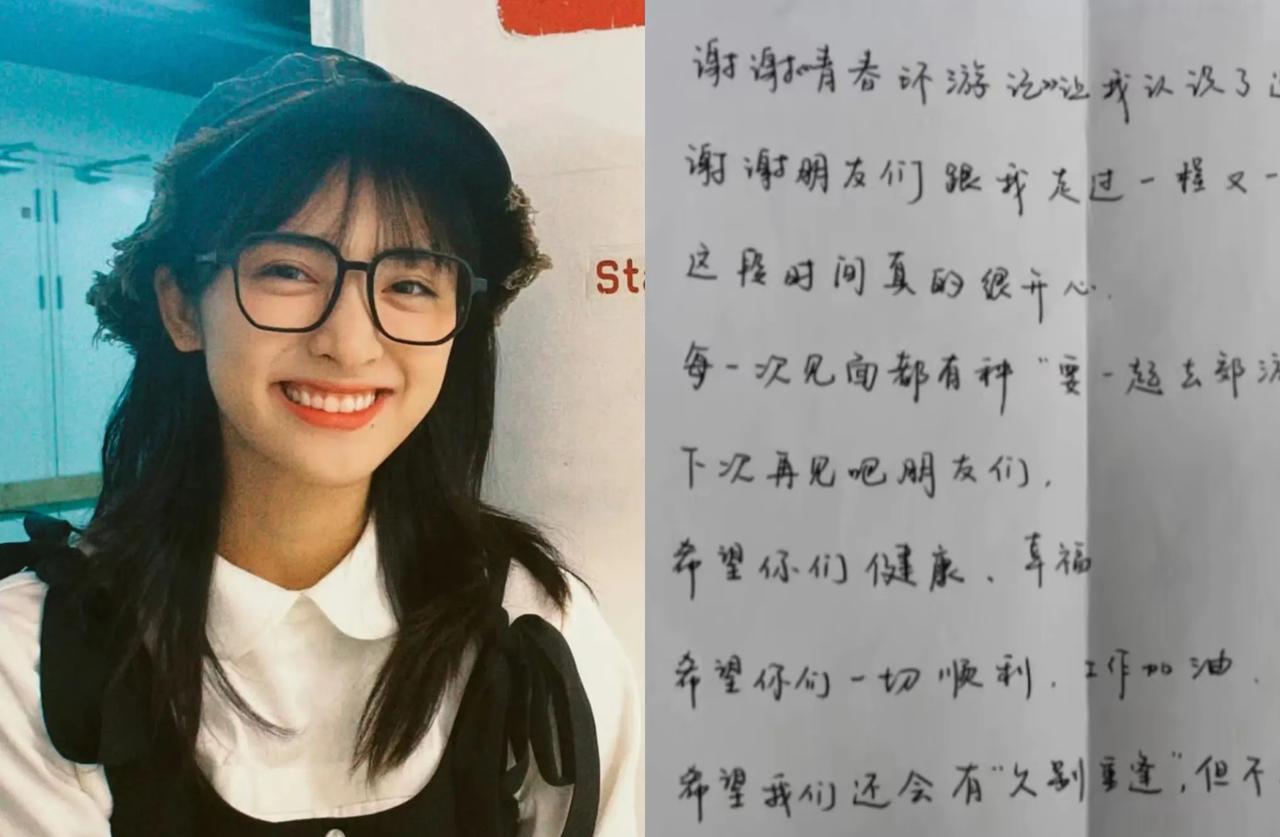 Sta
谢谢《青春环游记》让我认识了这
谢谢朋友们跟我走过一程又一
这段时间真的很开心.
每一次见面都有种“要一起去郊游
下次再见吧朋友们.
希望你们健康、幸福
希望你们一切顺利.工作加油.
希望我们还会有“久别重逢”,但不